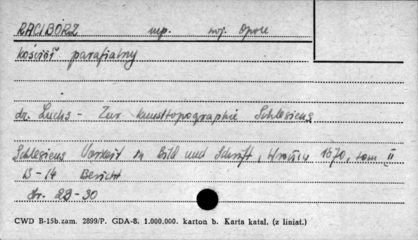 RACIBÓRZ woj. Opole
kościół parafialny
dr. Luchs - Zur Kunsttopographie Schlesiens
Schlesiens Vorzeit in Bild und Schrift, 1870, tom II
13-14 Bericht
str. 29-30
CWD B-15b.zam. 2899/P. GDA-8. 1.000.000. karton b. Karta katal. (z liniat.)